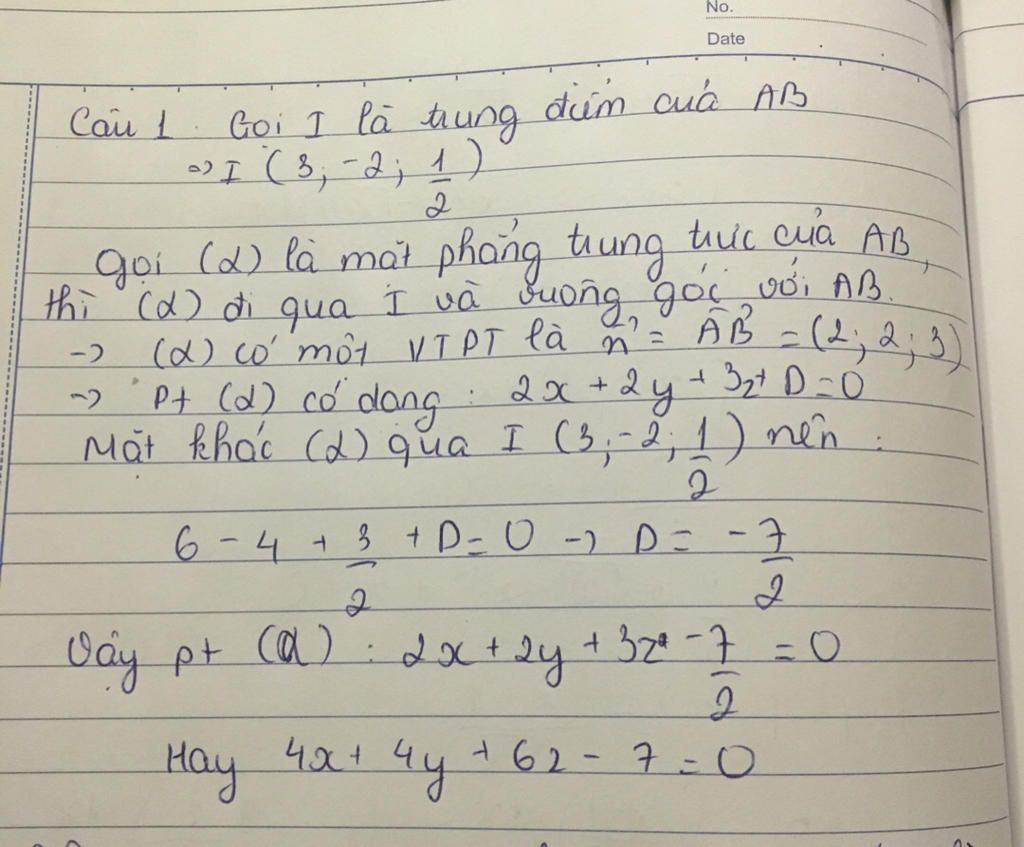 No.
Date
Câu 1. Gọi I là trung điểm của AB
=> I (3; -2; 1/2)
Gọi (α) là mặt phẳng trung trực của AB,
thì (α) đi qua I và vuông góc với AB.
-> (α) có một VTPT là n⃗ = AB⃗ = (2; 2; 3)
-> Pt (α) có dạng: 2x + 2y + 3z + D = 0
Mặt khác (α) qua I (3; -2; 1/2) nên:
6 - 4 + 3/2 + D = 0 -> D = -7/2
Vậy pt (α): 2x + 2y + 3z - 7/2 = 0
Hay 4x + 4y + 6z - 7 = 0